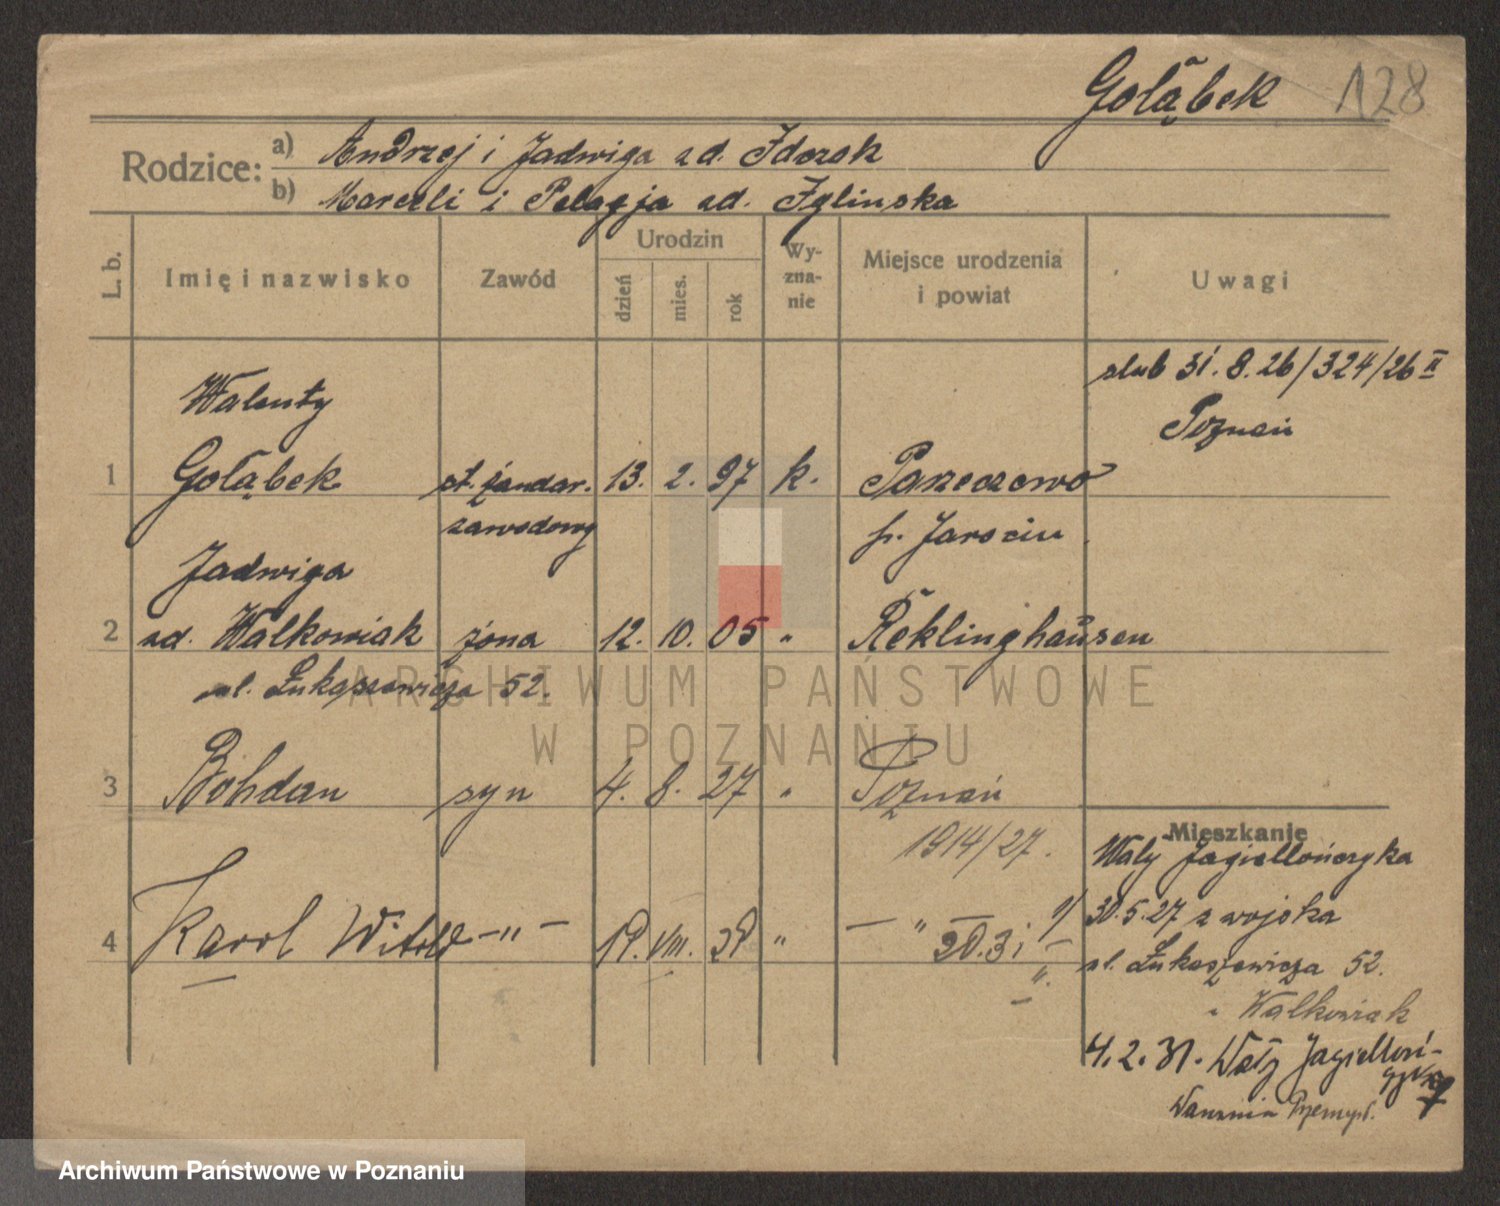 Gołąbek 128
Rodzice: a) Andrzej i Jadwiga zd. Idczak
b) Marceli i Pelagja zd. Iglinska
L. b. Imię i nazwisko Zawód Urodzin dzień mies. rok Wy-zna-nie Miejsce urodzenia i powiat Uwagi
ślub 31. 8. 26/324/26 II
Poznań
Walenty
1 Gołąbek st. żandar. 13. 2. 97 k. Parzeczewo
zawodowy p. Jarocin
Jadwiga
2 zd. Walkowiak żona 12. 10. 05 " Reklinghausen
ul. Łukaszewicza 52.
3 Bohdan syn 4. 8. 27 " Poznań
1914/27.
4 Karol Witold -"- VIII. " - "
Mieszkanie
Wały Jagiellończyka
30.5.27 z wojska
ul. Łukaszewicza 52.
" Walkowiak
4. 2. 31. Wały Jagielloń-
czyka
ARCHIWUM PAŃSTWOWE
W POZNANIU
Archiwum Państwowe w Poznaniu